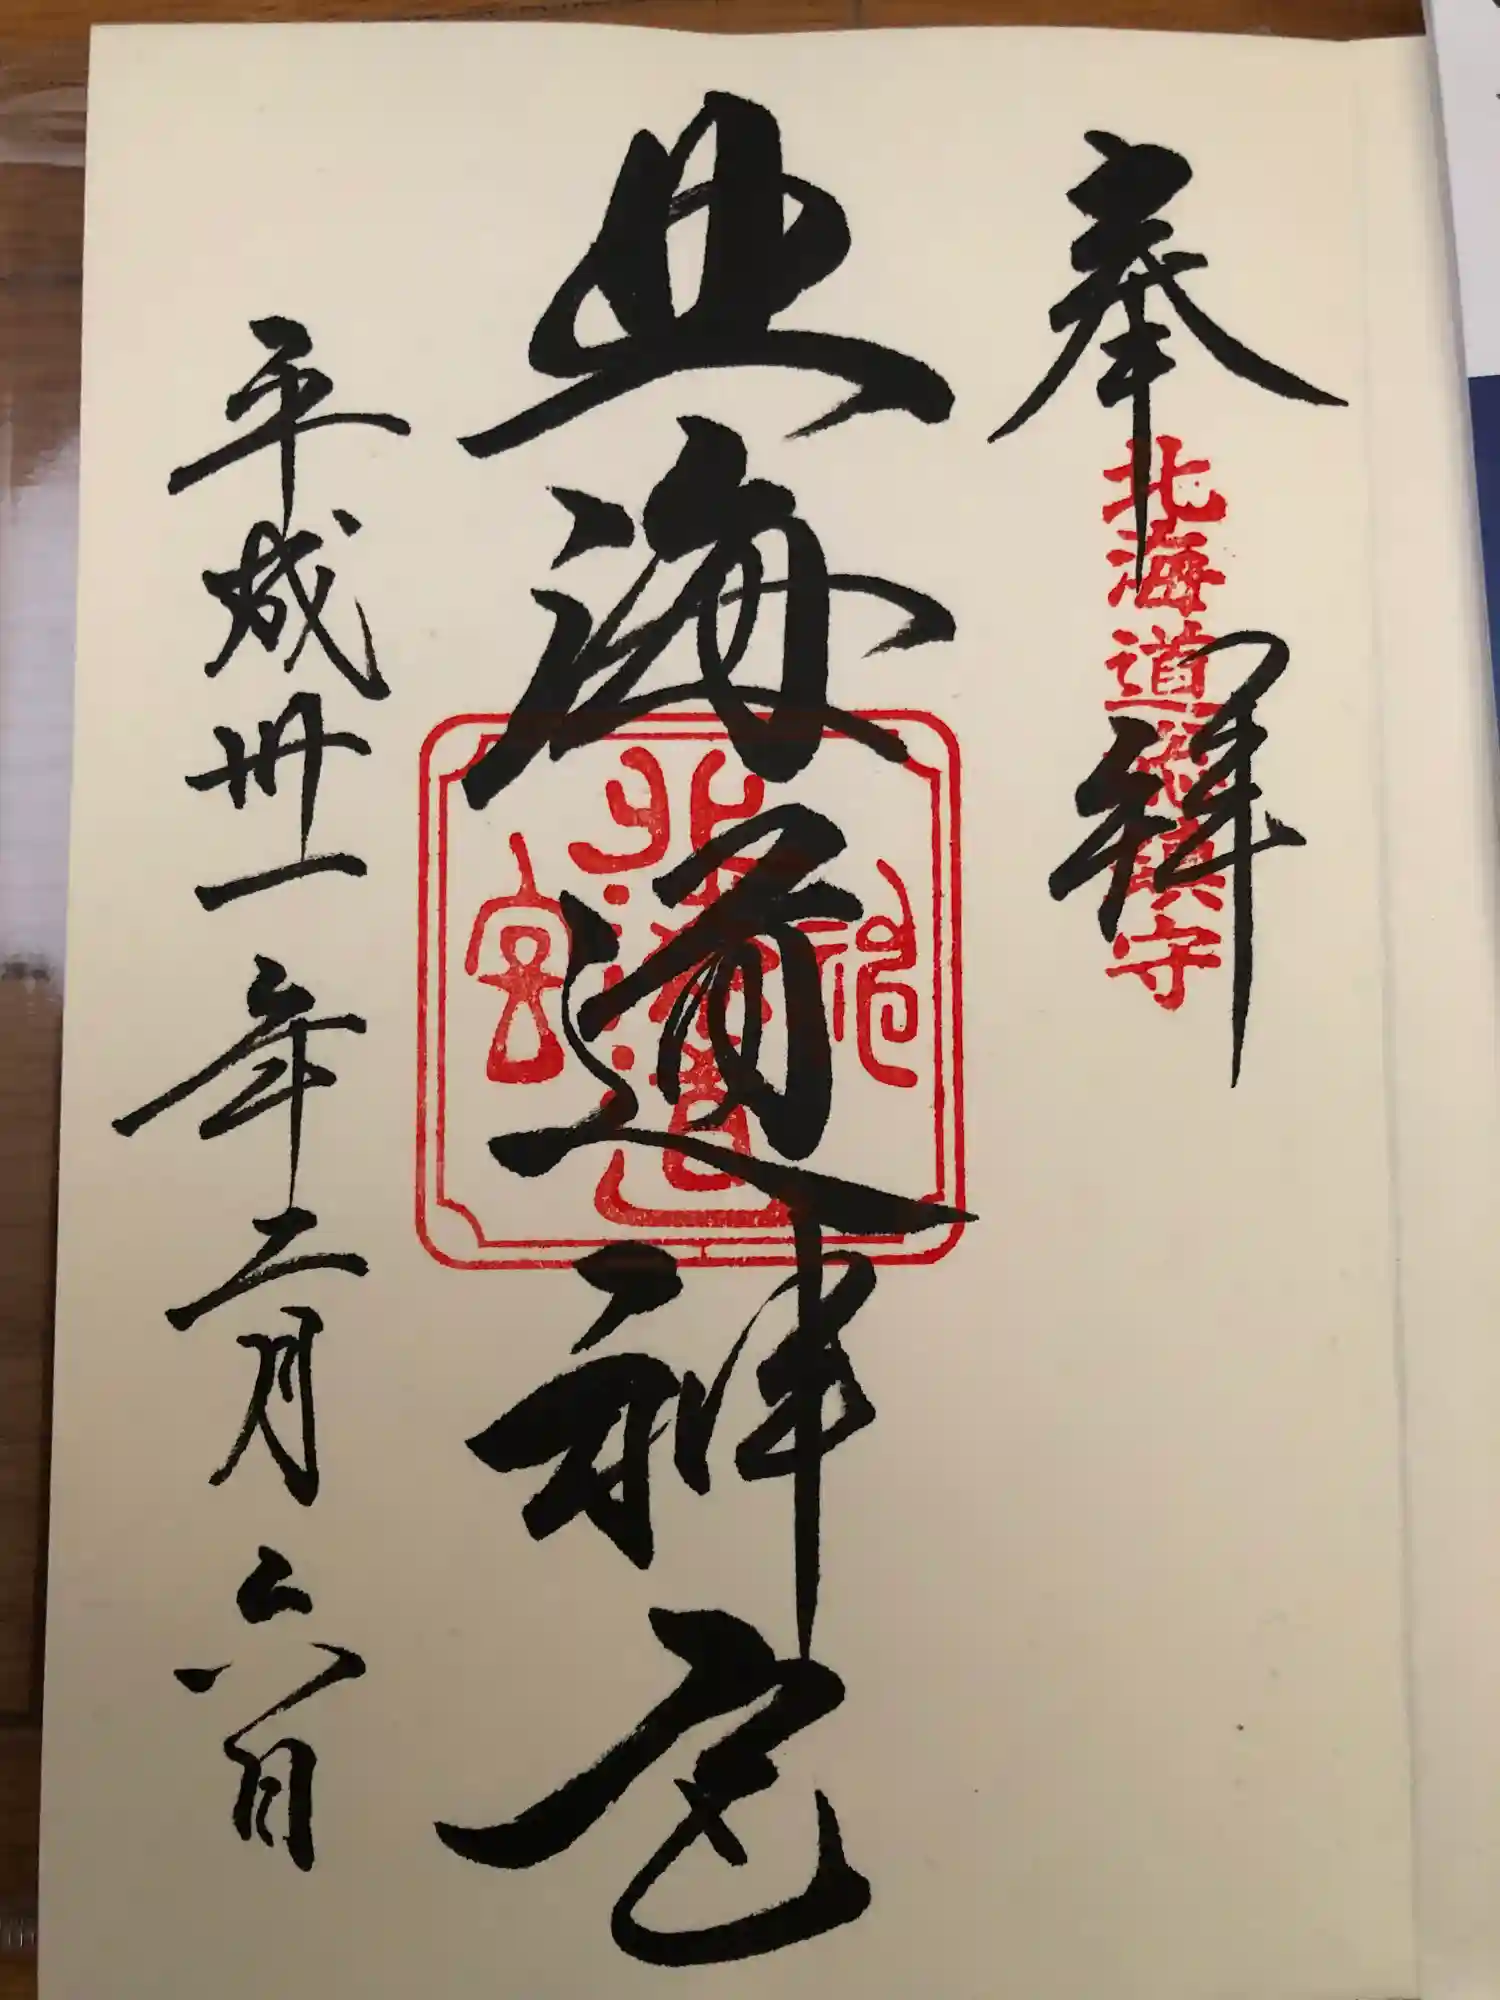 奉拝
北海道総鎮守
北海道神宮
北海道神宮
平成卅一年二月六日